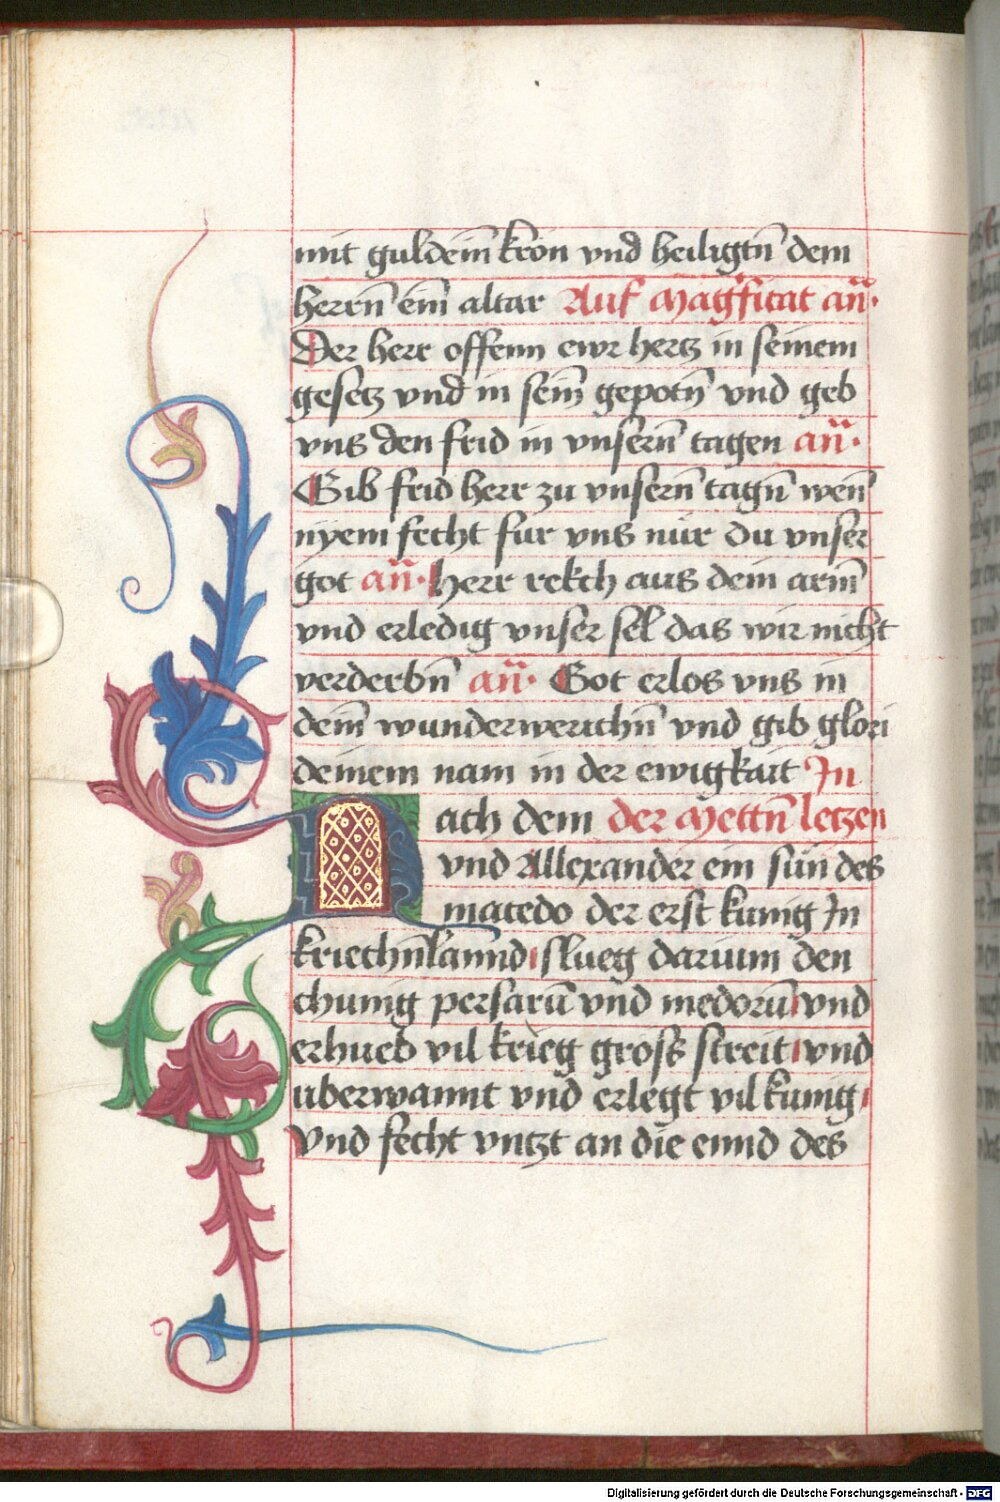 mit guldein̄ kron vnd heiligtn̄ dem
herrn̄ ein̄ altar Auf magn̄ficat an̄·
Der herr offenn ewr hertz in seinem
gesetz vnd in sein̄ gepotn̄ vnd geb
vns den frid in vnsern̄ tagen an̄·
Gib frid herr zu vnsern̄ tagn̄ wen̄
nyem fecht fur vns nur du vnser
got an̄· Herr rekch aus dein arm̄
vnd erledig vnser sel das wir nicht
verderbn̄ an̄· Got erlos vns in
dein̄ wunderwerichn̄ vnd gib glori
deinem nam in der ewigkait In
Nach dem der Mettn̄ letzen
vnd Allexander ein sun des
macedo der erst kunig In
kriechn̄lannd slueg darium den
chunig persarū vnd medorū vnd
erhueb vil krieg gross streit vnd
uberwannt vnd erlegt vil kunig
Vnd fecht vntzt an die ennd des
Digitalisierung gefördert durch die Deutsche Forschungsgemeinschaft - DFG